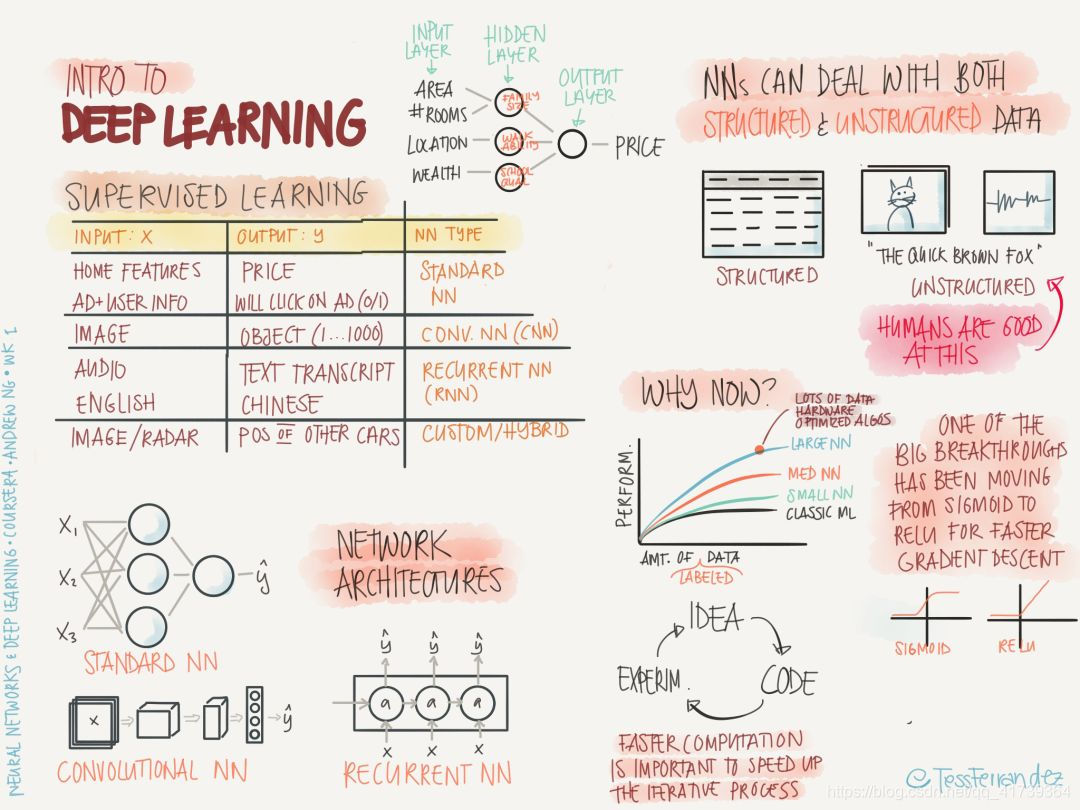 INTRO TO
DEEP LEARNING
INPUT LAYER
HIDDEN LAYER
OUTPUT LAYER
AREA
#ROOMS
LOCATION
WEALTH
FAMILY SIZE
WALK ABILITY
SCHOOL QUAL
PRICE
SUPERVISED LEARNING
INPUT: X OUTPUT: y NN TYPE
HOME FEATURES PRICE STANDARD
AD+USER INFO WILL CLICK ON AD (0/1) NN
IMAGE OBJECT (1...1000) CONV. NN (CNN)
AUDIO TEXT TRANSCRIPT RECURRENT NN
ENGLISH CHINESE (RNN)
IMAGE/RADAR POS OF OTHER CARS CUSTOM/HYBRID
X1
X2
X3
ŷ
STANDARD NN
NETWORK
ARCHITECTURES
X
ŷ
CONVOLUTIONAL NN
ŷ ŷ ŷ
a a a
X X X
RECURRENT NN
NNs CAN DEAL WITH BOTH
STRUCTURED & UNSTRUCTURED DATA
STRUCTURED
"THE QUICK BROWN FOX"
UNSTRUCTURED
HUMANS ARE GOOD
AT THIS
WHY NOW?
LOTS OF DATA
HARDWARE
OPTIMIZED ALGOS
LARGE NN
MED NN
SMALL NN
CLASSIC ML
PERFORM.
AMT. OF DATA
LABELED
ONE OF THE
BIG BREAKTHROUGHS
HAS BEEN MOVING
FROM SIGMOID TO
RELU FOR FASTER
GRADIENT DESCENT
SIGMOID RELU
IDEA
EXPERIM.
CODE
FASTER COMPUTATION
IS IMPORTANT TO SPEED UP
THE ITERATIVE PROCESS
@TessFerrandez
NEURAL NETWORKS & DEEP LEARNING • COURSERA • ANDREW NG • WK 1
https://blog.csdn.net/qq_41739364